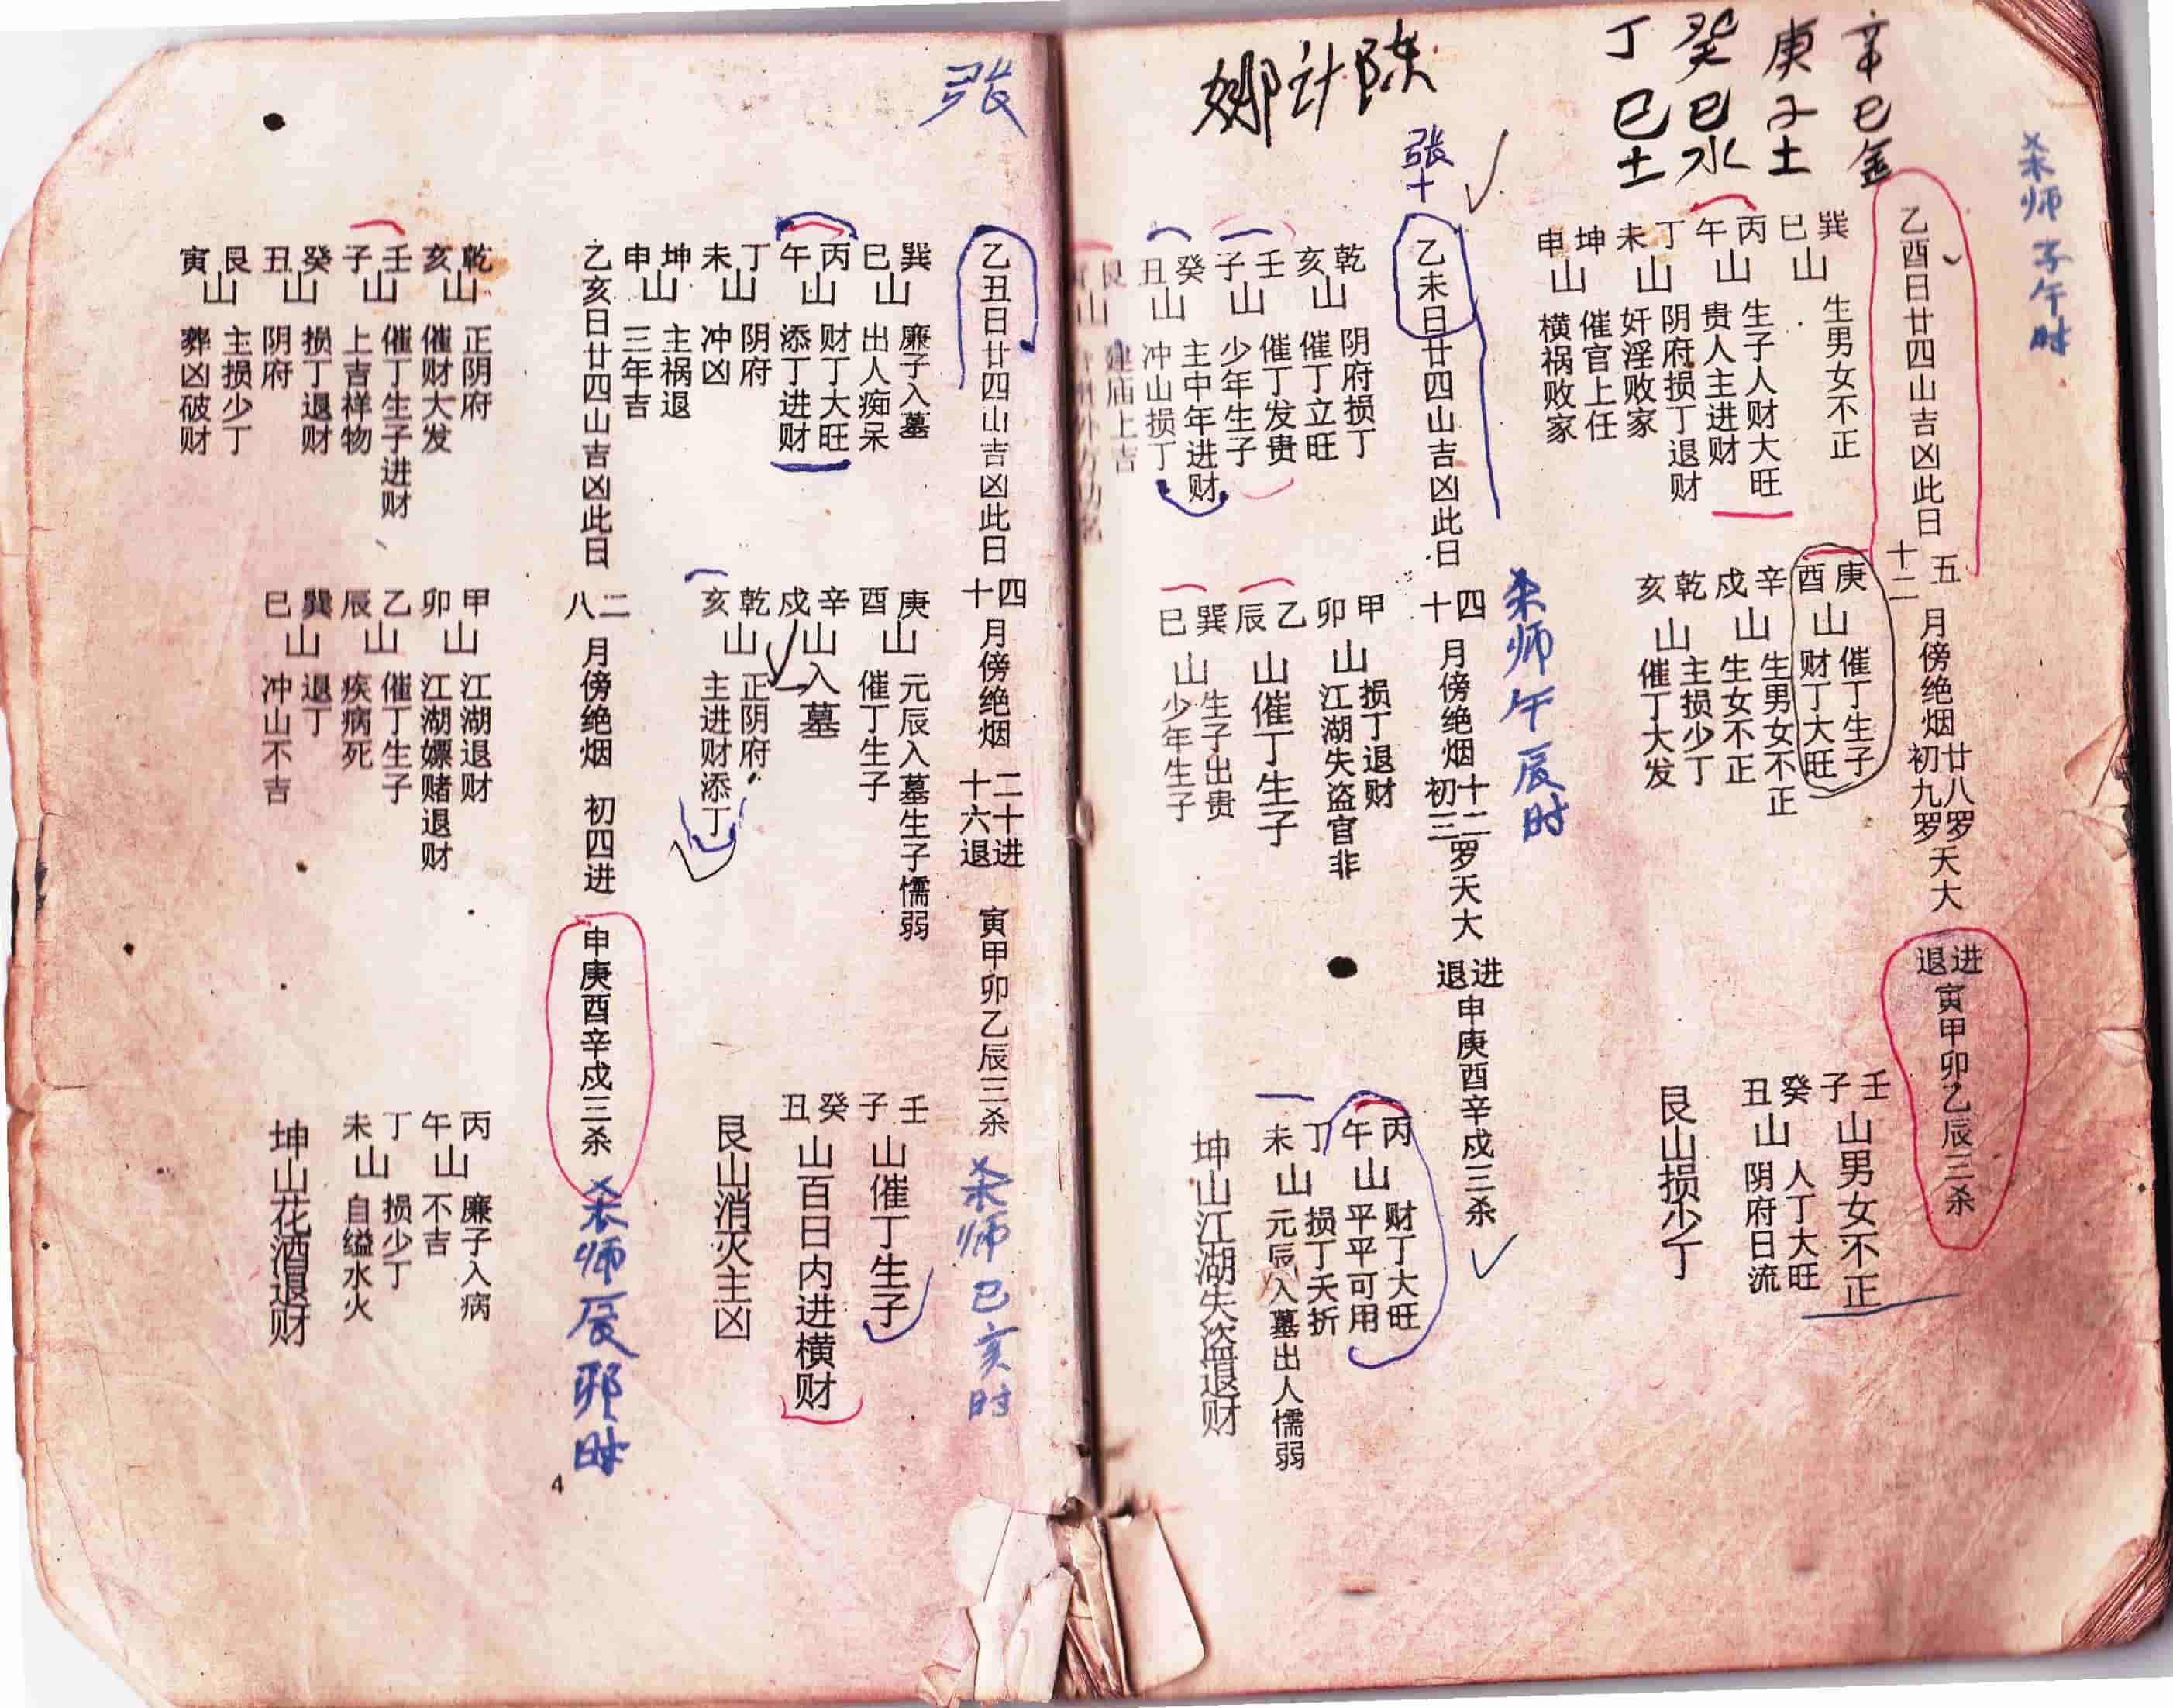 杀师子午时
辛巳金
庚子土
癸巳水
丁巳土
陈计娜
乙酉日廿四山吉凶此日
五
十二
月傍绝烟
廿八罗
初九罗
天大
进
退
寅甲卯乙辰三杀
巽巳山
生男女不正
丙午山
生子人财大旺
贵人主进财
丁未山
阴府损丁退财
奸淫败家
坤申山
催官上任
横祸败家
庚酉山
催丁生子
财丁大旺
辛戍山
生男女不正
生女不正
乾亥山
主损少丁
催丁大发
壬子山男女不正
癸丑山
人丁大旺
阴府日流
艮山损少丁
张十
乙未日廿四山吉凶此日
四
十
月傍绝烟
十二
初三
罗天大
进
退
申庚酉辛戍三杀
杀师午辰时
乾亥山
阴府损丁
催丁立旺
壬子山
催丁发贵
少年生子
癸丑山
主中年进财
冲山损丁
艮
山
建庙上吉
甲卯山
损丁退财
江湖失盗官非
乙辰山催丁生子
巽巳山
生子出贵
少年生子
丙午山
财丁大旺
平平可用
丁未山
损丁夭折
元辰入墓出人懦弱
坤山江湖失盗退财
张
乙丑日廿四山吉凶此日
四
十
月傍绝烟
二十进
十六退
寅甲卯乙辰三杀
杀师巳亥时
巽巳山
廉子入墓
出人痴呆
丙午山
财丁大旺
添丁进财
丁未山
阴府
冲凶
坤申山
主祸退
三年吉
庚酉山
元辰入墓生子懦弱
催丁生子
辛戍山入墓
乾亥山
正阴府
主进财添丁
壬子山催丁生子
癸丑山百日内进横财
艮山消灭主凶
乙亥日廿四山吉凶此日
二
八
月傍绝烟
初四进
申庚酉辛戍三杀
杀师辰卯时
乾亥山
正阴府
催财大发
壬子山
催丁生子进财
上吉祥物
癸丑山
损丁退财
阴府
艮寅山
主损少丁
葬凶破财
甲卯山
江湖退财
江湖嫖赌退财
乙辰山
催丁生子
疾病死
巽巳山
退丁
冲山不吉
丙午山
廉子入病
不吉
丁未山
损少丁
自缢水火
坤山花酒退财
4